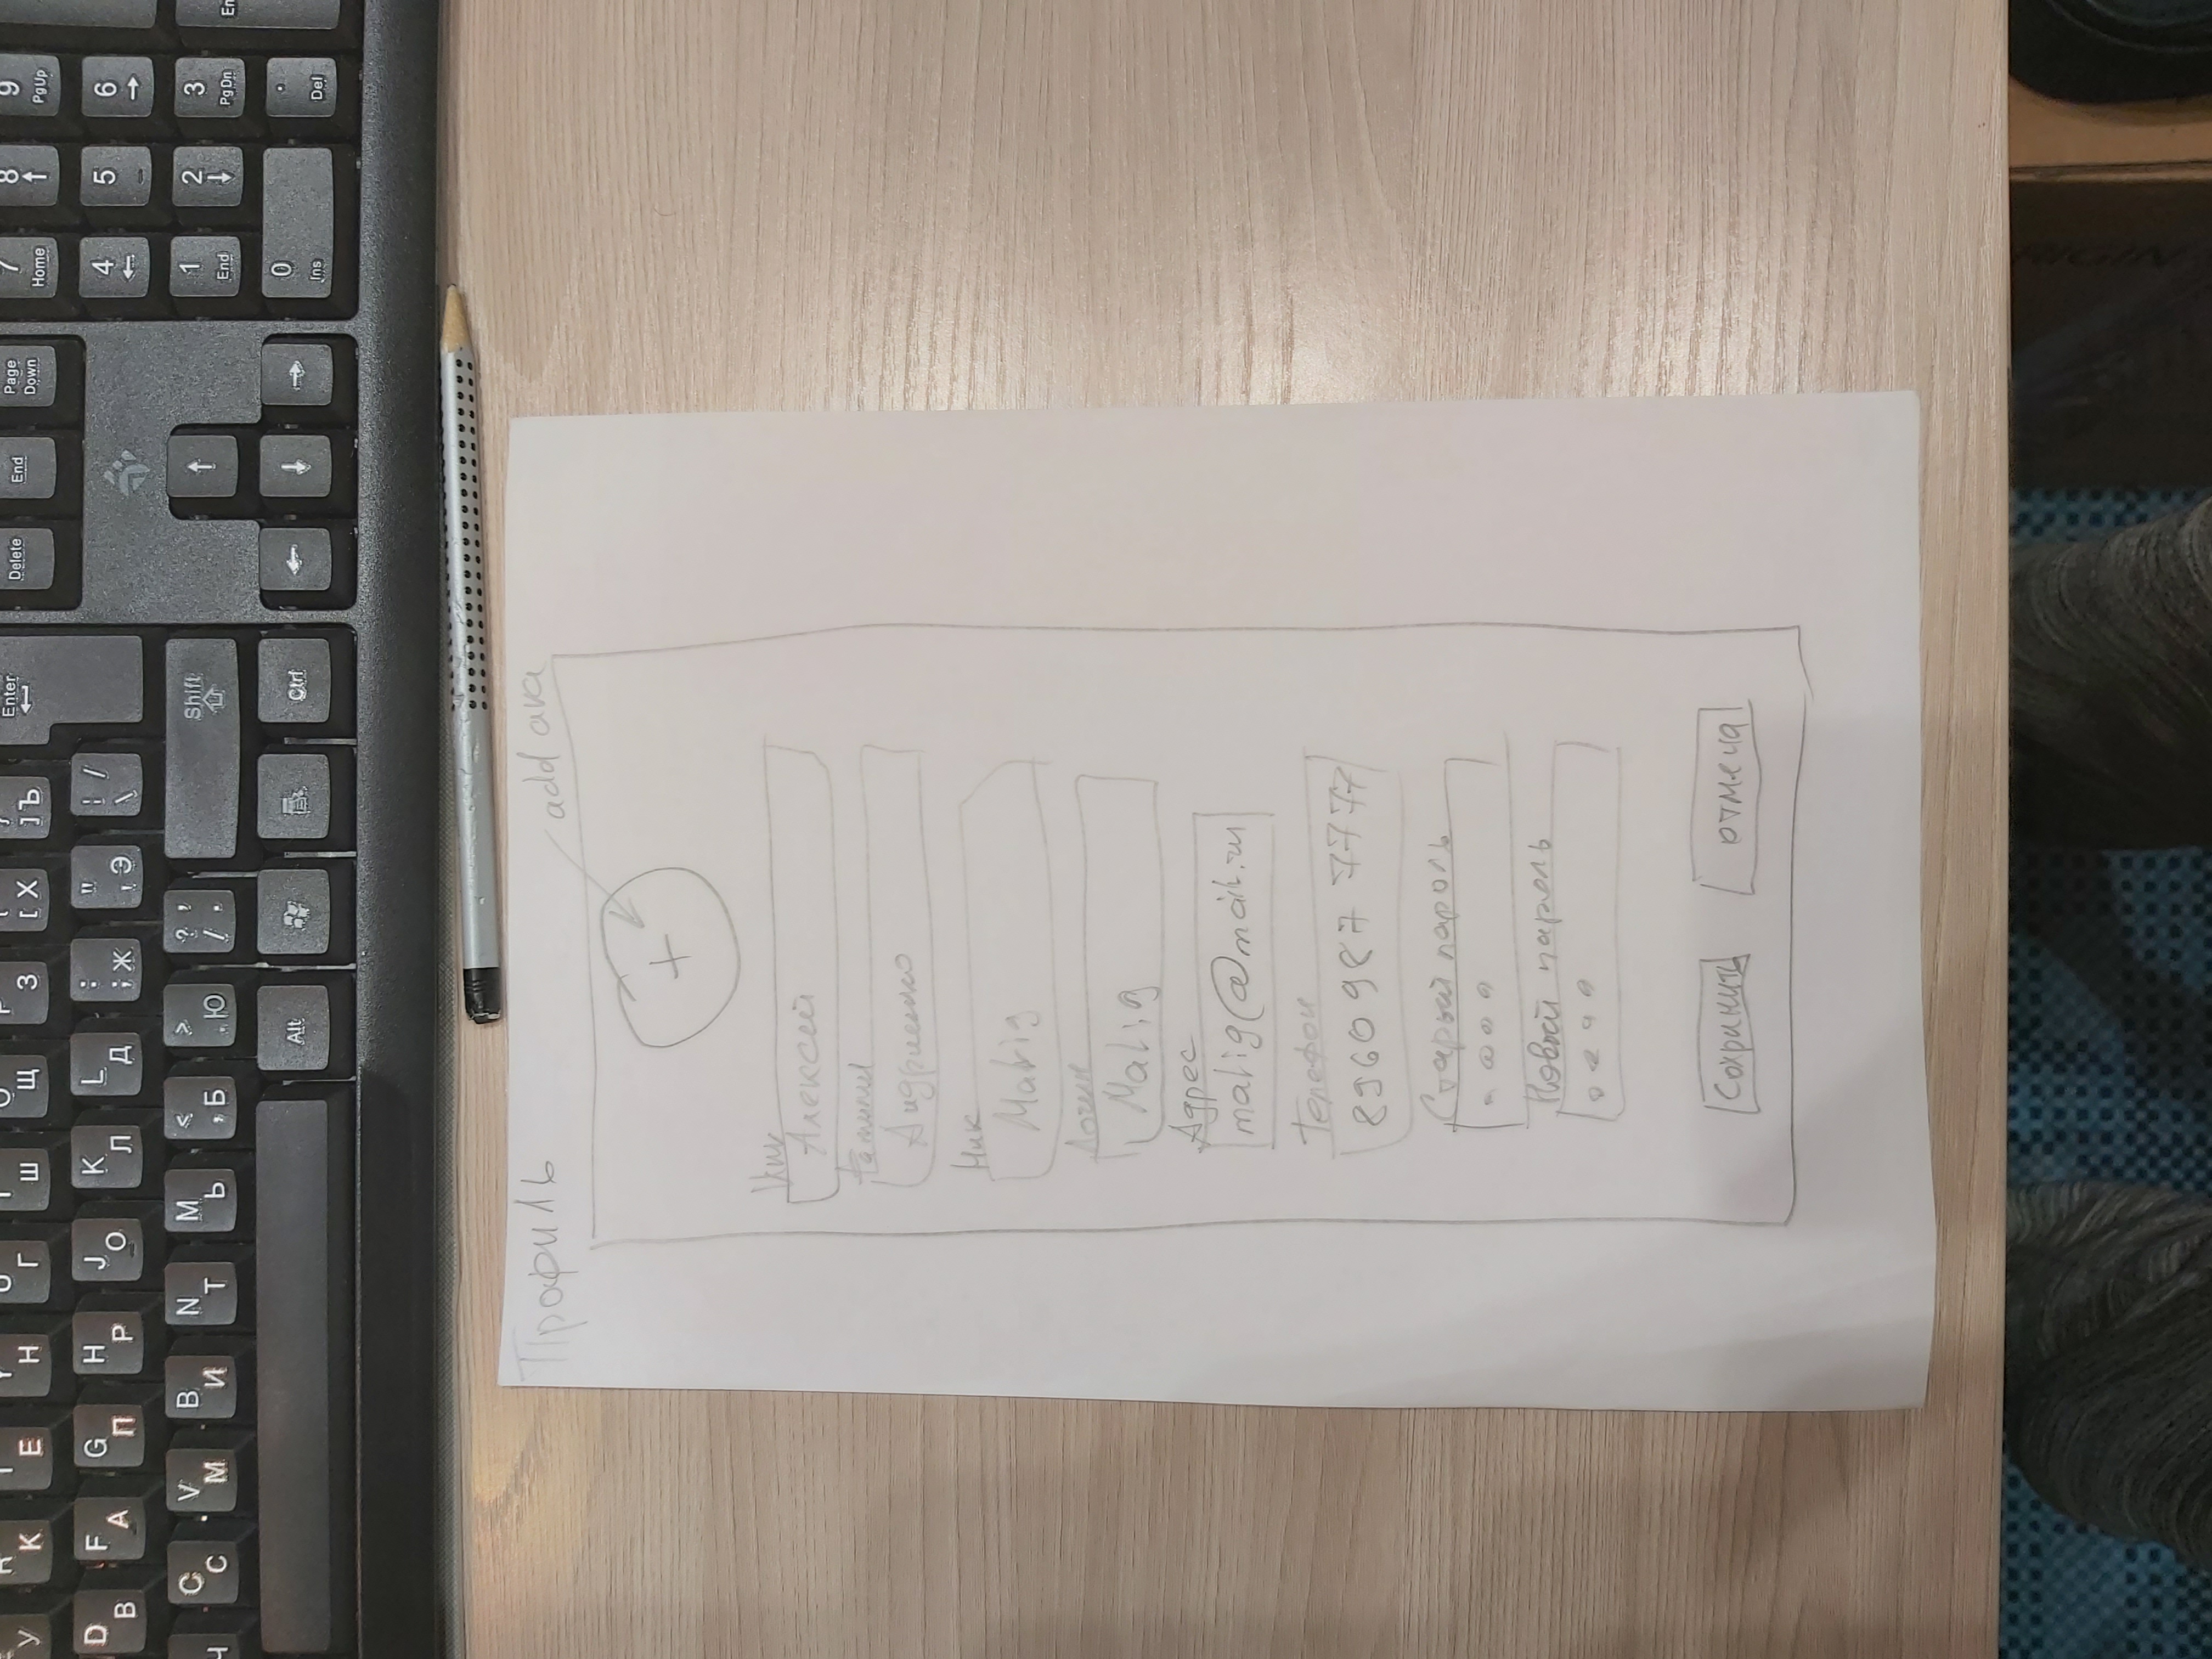 У К Е Н Г Ш Щ З [ Х ] Ъ Enter Delete End Page Down 7 Home 8 9 PgUp
D В F А G П H Р J О K Л L Д : ; Ж " , Э / \ 4 5 6
Ч C С V М B И N Т M Ь < , Б > . Ю ? , / . Shift 1 End 2 3 PgDn
Alt Ctrl 0 Ins . Del
Профиль
add ava
+
Имя
Алексей
Фамилия
Андриенко
Ник
Malig
Логин
Malig
Адрес
malig@mail.ru
Телефон
8960 987 7777
Старый пароль
Новый пароль
Сохранить отмена